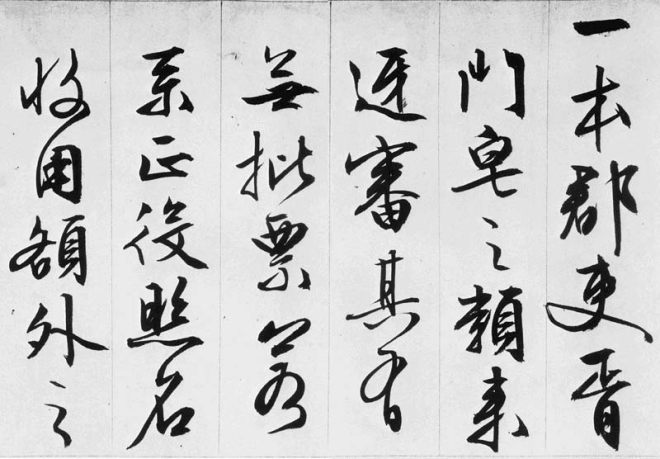 一本郡吏胥
門皂之類來
遞審其有
無批票若
系正役照名
收用額外之